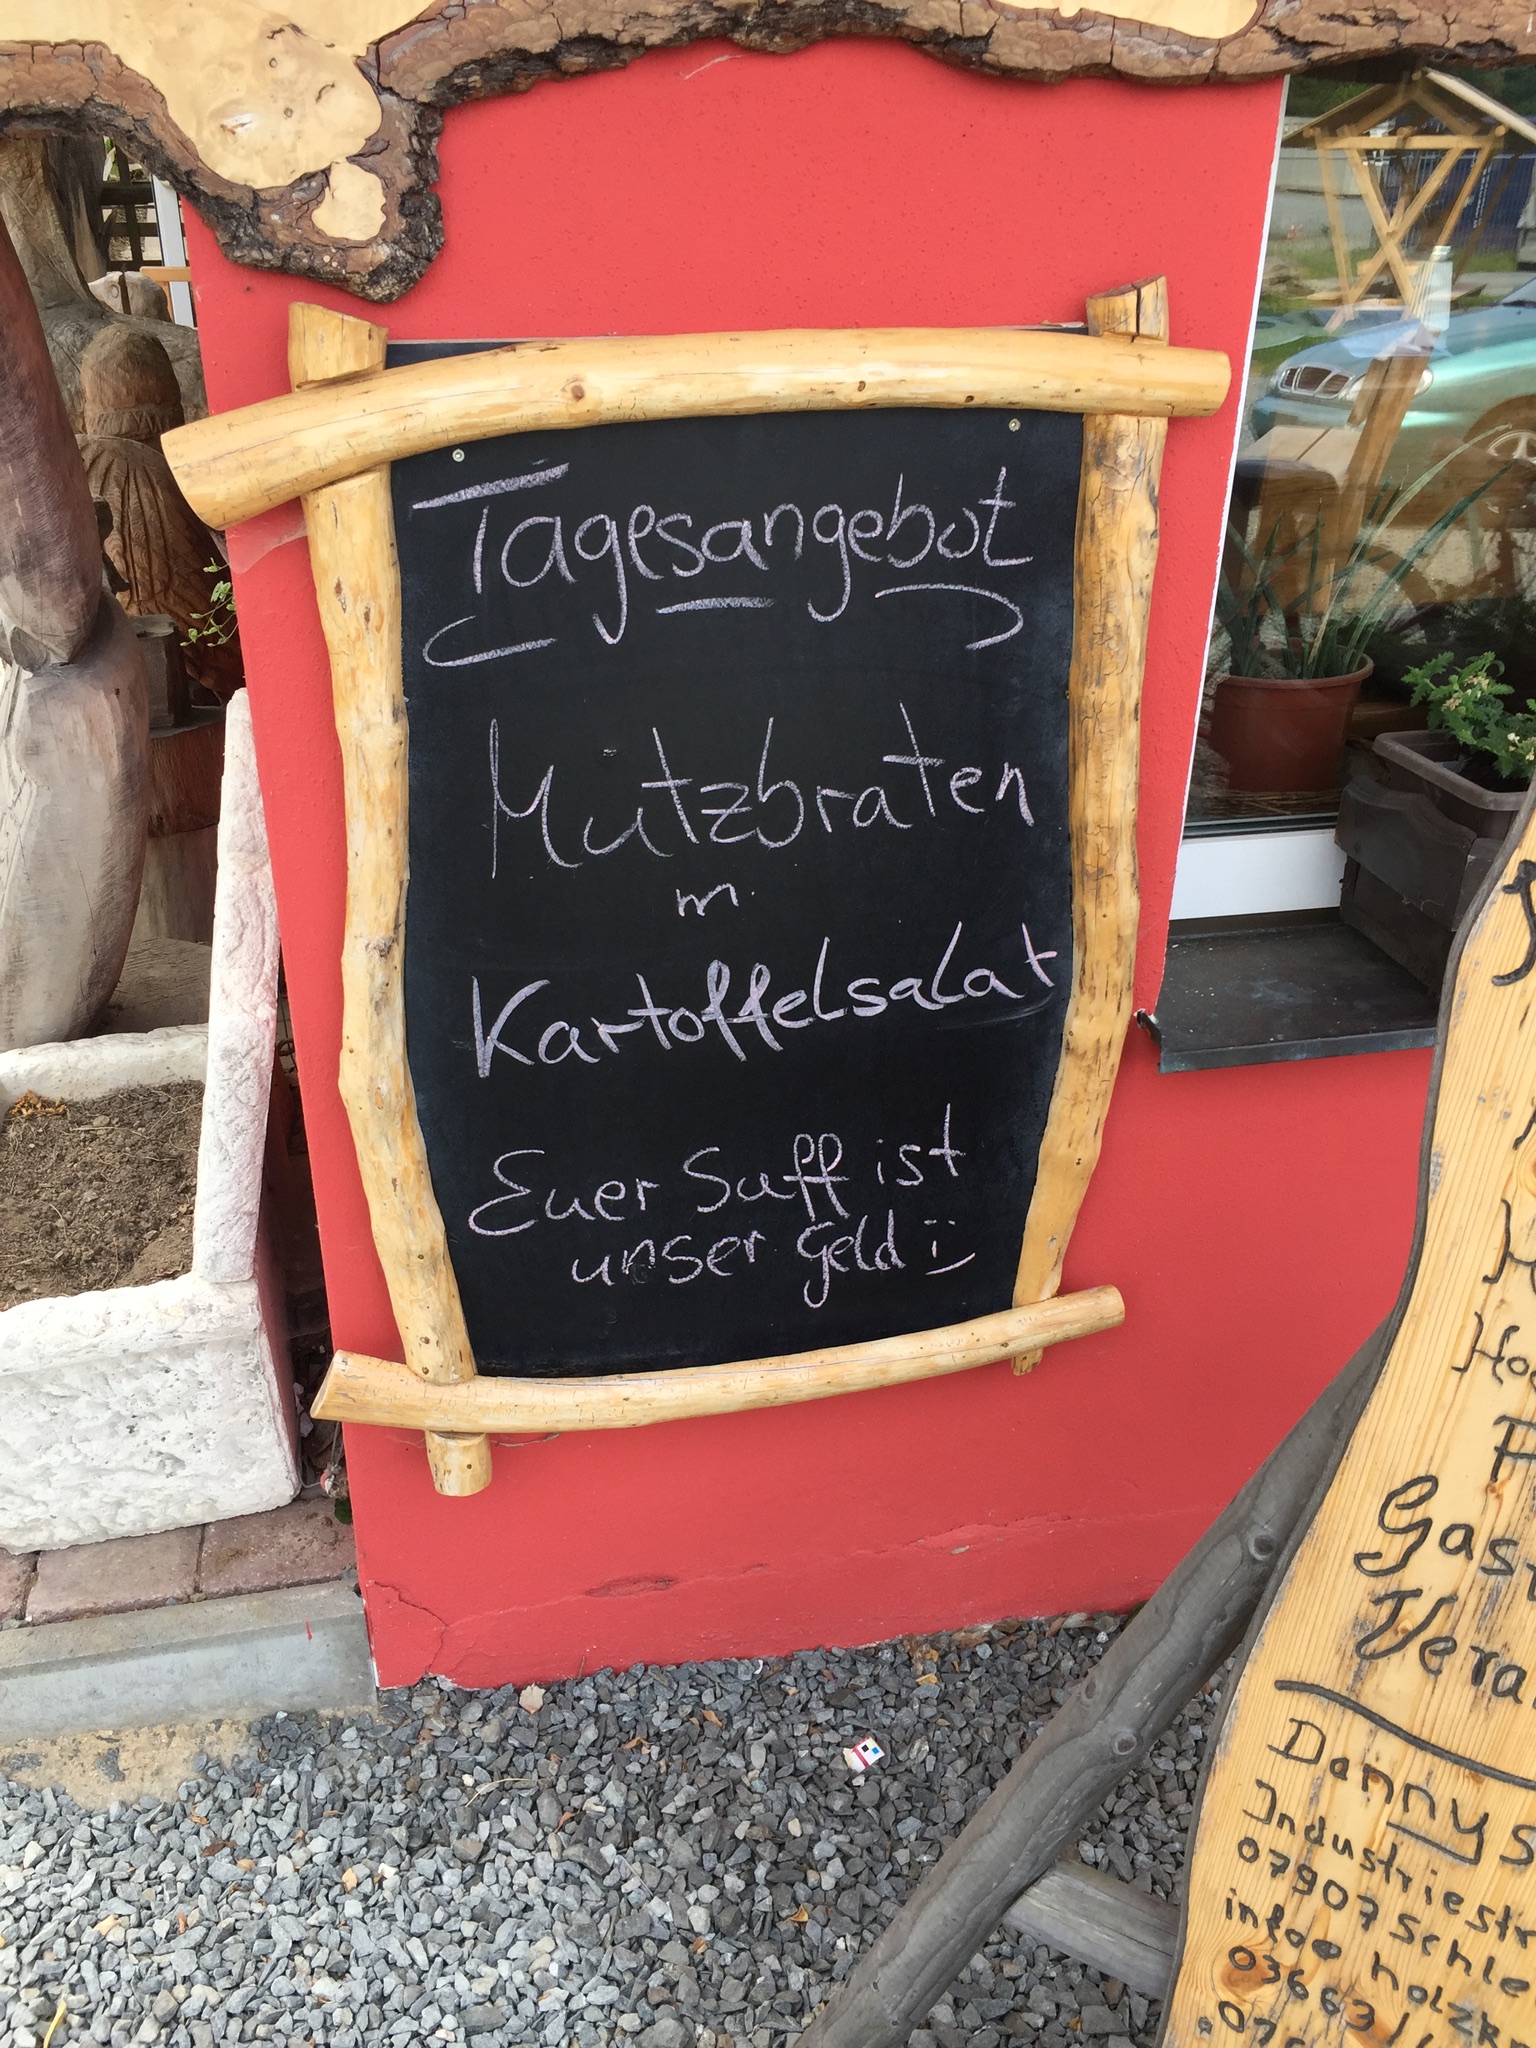 Tagesangebot
Mutzbraten
m.
Kartoffelsalat
Euer Suff ist
unser Geld :)
Danny
Industriestr
07907 Schle
info@holzk
03663/